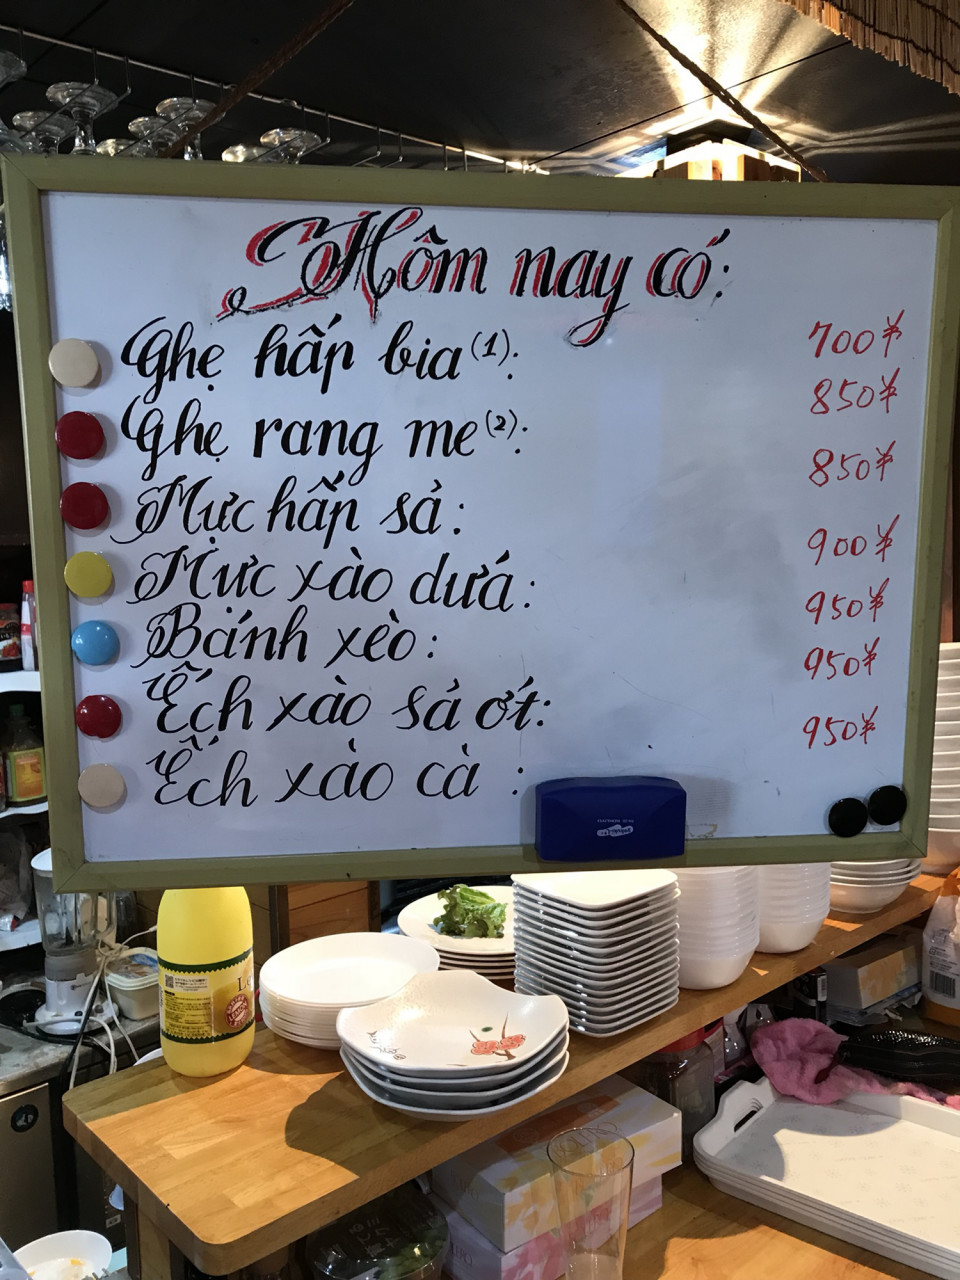 Hôm nay có:
Ghẹ hấp bia (1): 700¥
Ghẹ rang me (2): 850¥
Mực hấp sả: 850¥
Mực xào dứa: 900¥
Bánh xèo: 950¥
Ếch xào sả ớt: 950¥
Ếch xào cà : 950¥